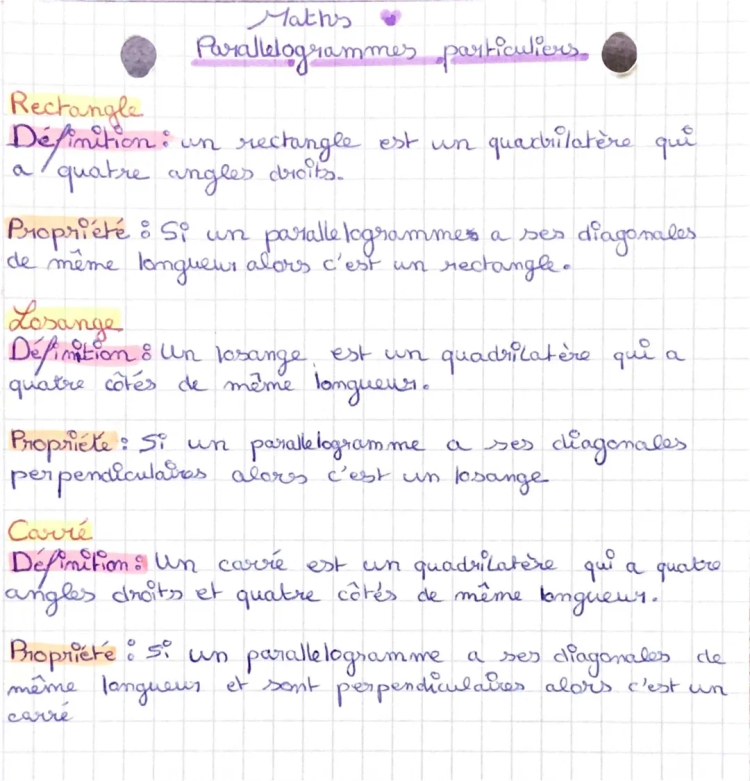 Maths
Parallelogrammes particuliers
Rectangle
Définition : un rectangle est un quadrilatère qui
a quatre angles droits.
Propriété : Si un parallelogrammes a ses diagonales
de même longueur alors c'est un rectangle.
Losange
Définition : Un losange est un quadrilatère qui a
quatre côtés de même longueur.
Propriété : Si un parallelogramme a ses diagonales
perpendiculaires alors c'est un losange
Carré
Définition : Un carré est un quadrilatère qui a quatre
angles droits et quatre côtés de même longueur.
Propriété : Si un parallelogramme a ses diagonales de
même longueur et sont perpendiculaires alors c'est un
carré